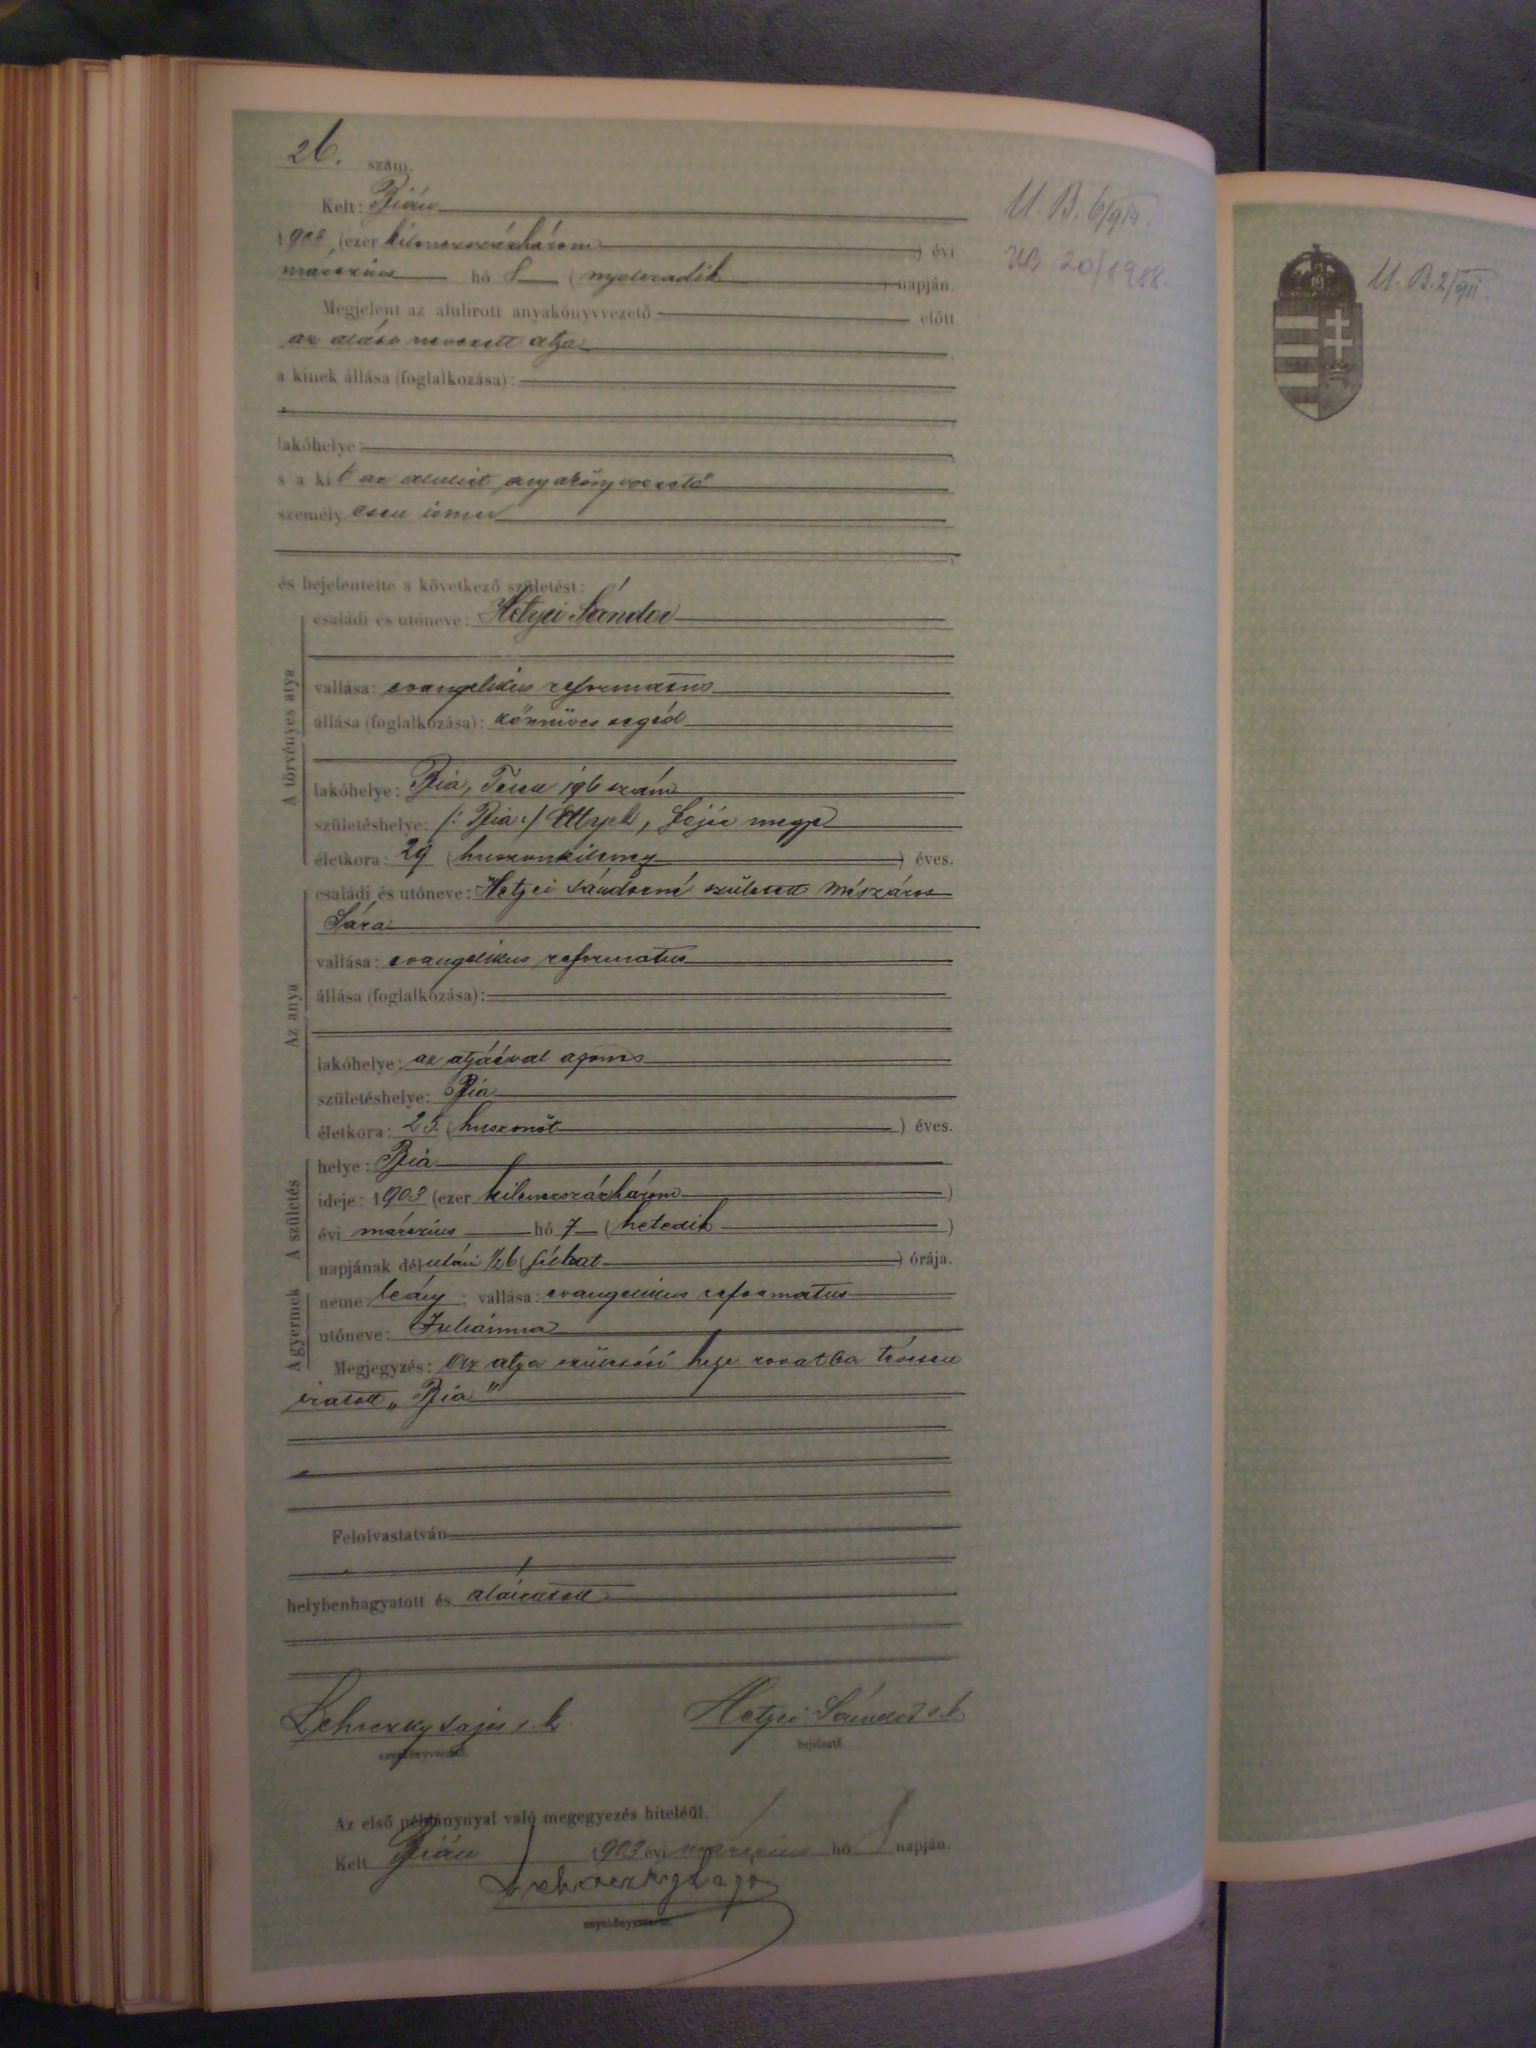 26. szám.
Kelt: Bián
1903 (ezer kilenczszázhárom ) évi
márczius hó 8 (nyolczadik ) napján.
Megjelent az alulirott anyakönyvvezető előtt
az alább nevezett atya
a kinek állása (foglalkozása):
lakóhelye
s a kit az alulirt anyakönyvvezető
személyesen ismer
és bejelentette a következő születést:
A törvényes atya
családi és utóneve: Hetyei Sándor
vallása: evangelikus reformatus
állása (foglalkozása): kőmüves segéd
lakóhelye: Bia, 196 szám
születéshelye: /: Bia :/ Etyek, Fejér megye
életkora: 29 (huszonkilencz ) éves.
Az anya
családi és utóneve: Hetyei Sándorné született Mészáros
Sára
vallása: evangelikus reformatus
állása (foglalkozása):
lakóhelye: az atyáéval azonos
születéshelye: Bia
életkora: 25. (huszonöt ) éves.
A születés
helye: Bia
ideje: 1903 (ezer kilenczszázhárom )
évi márczius hó 7 (hetedik )
napjának délutáni 1/2 6 (félhat ) órája.
A gyermek
neme: leány; vallása: evangelikus reformatus
utóneve: Juliánna
Megjegyzés: Az atya születési helye rovatba tévesen
iratott „Bia"
Felolvastatván
helybenhagyatott és aláiratott
Lajos s. k. Hetyei Sándor s. k.
anyakönyvvezető. bejelentő.
Az első példánynyal való megegyezés hiteléül.
Kelt Bián 1903 évi márczius hó 8 napján.
Lajos
anyakönyvvezető.
U. B. 6/914.
UB 20/1988.
U. B. 2/911.